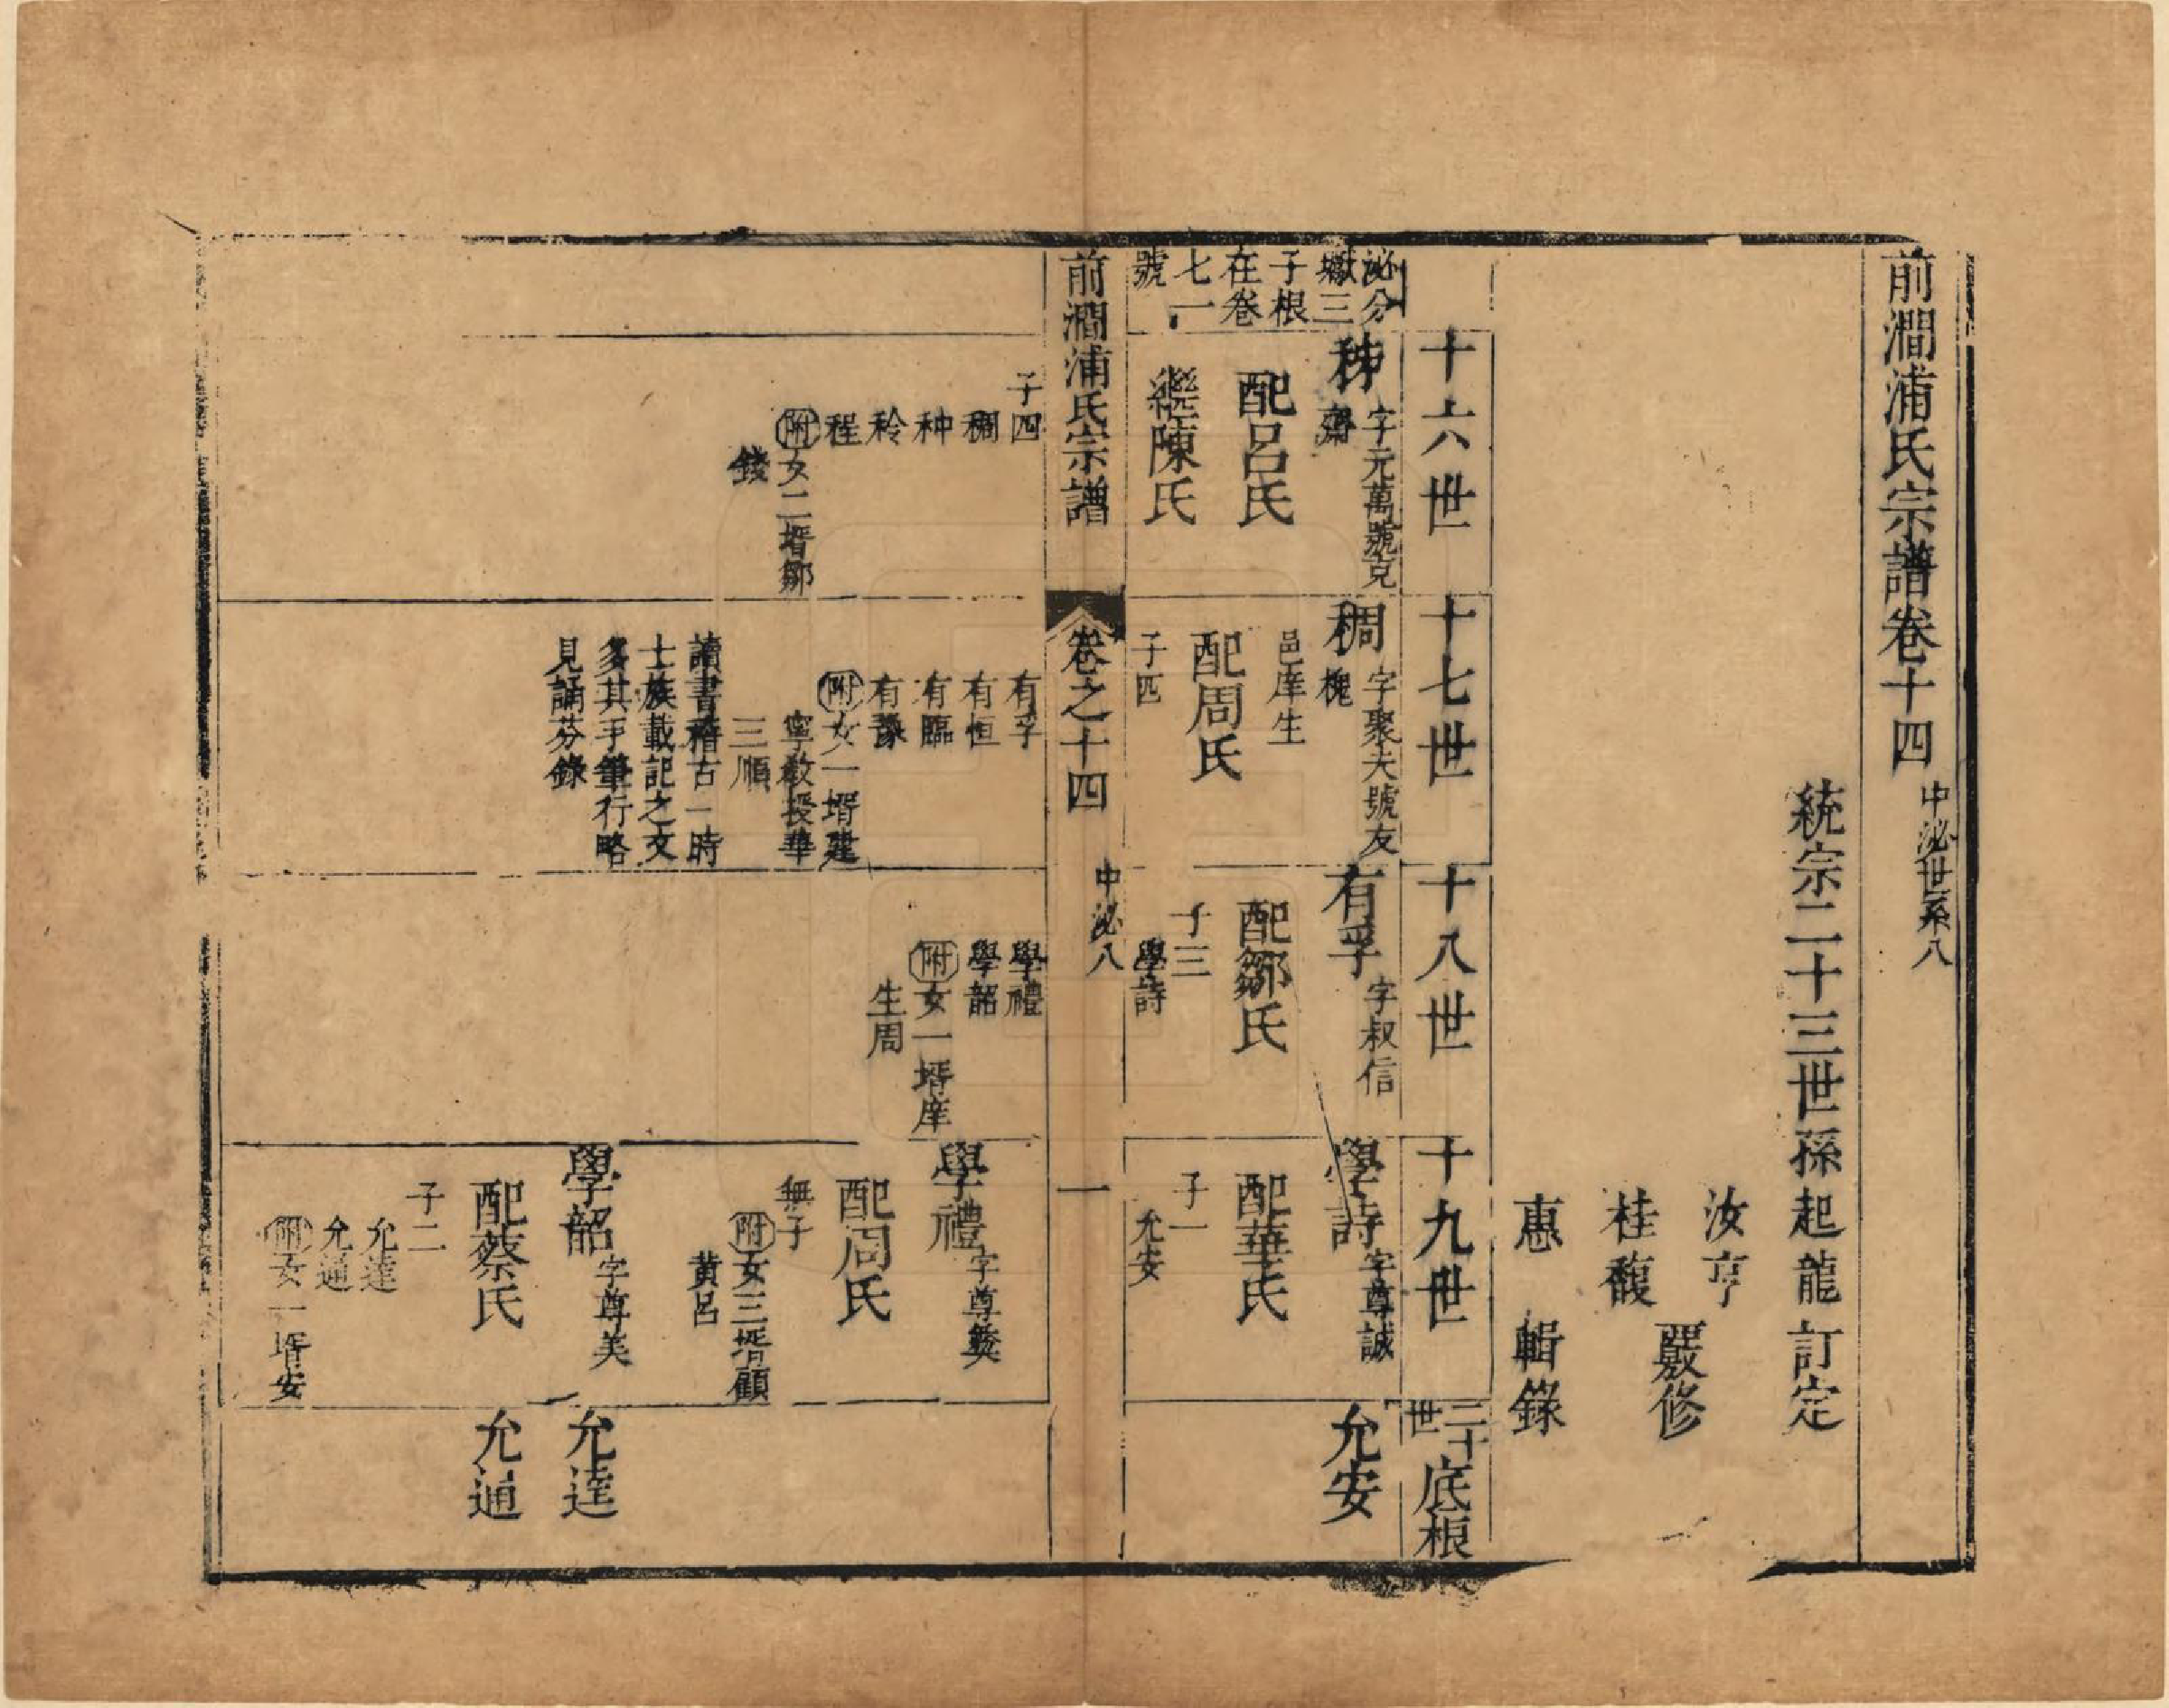 前澗浦氏宗譜卷十四
中泌世系八
統宗二十三世孫起龍訂定
汝亨
桂馥
覈修
惠 輯錄
十六世
十七世
十八世
十九世
二十世
底根
泌分
三
子根
在卷
七一
號
字元萬號克
齋
配呂氏
繼陳氏
稠
字聚夫號友
槐
邑庠生
配周氏
子四
有孚
字叔信
配鄒氏
子三
學詩
學詩
字尊誠
配華氏
子一
允安
允安
前澗浦氏宗譜
卷之十四
中泌八
一
子四
稠
种
秢
程
附女二壻鄒
錢
有孚
有恒
有臨
有豫
附女一壻建
寧教授華
三順
讀書稽古一時
士族載記之文
多其手筆行略
見誦芬錄
學禮
學韶
附女一壻庠
生周
學禮
字尊
配周氏
無子
附女三壻顧
黃呂
學韶
字尊美
配蔡氏
子二
允達
允通
附女一壻安
允達
允通